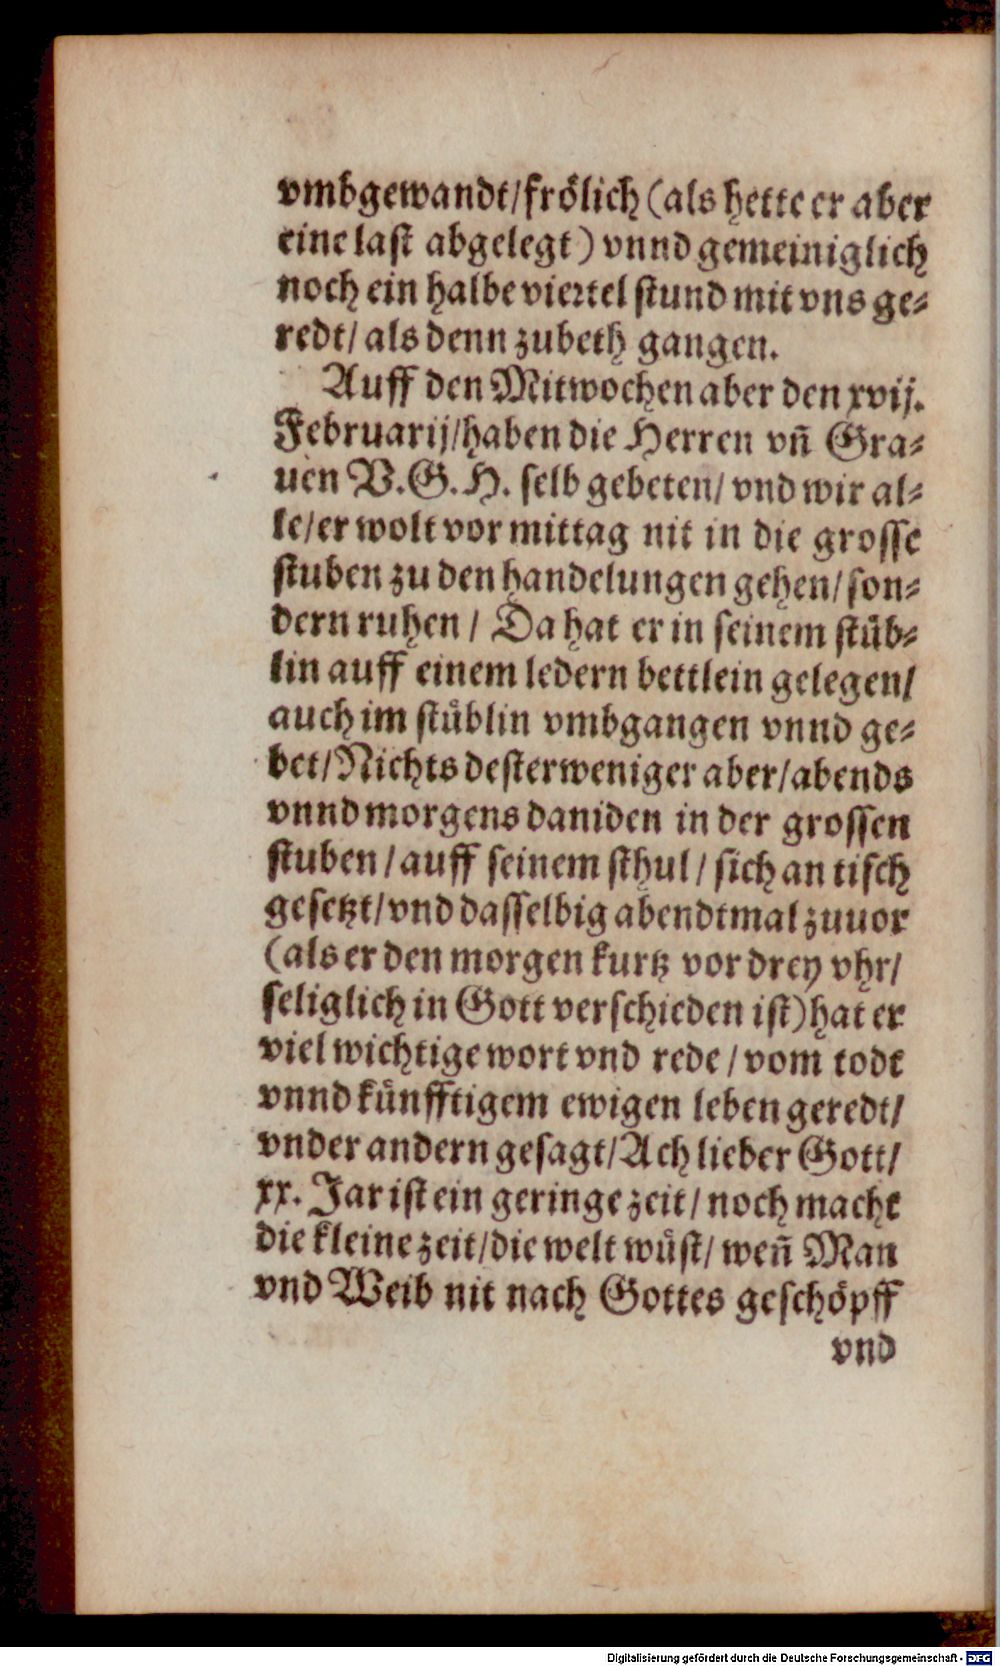 vmbgewandt/frölich (als hette er aber
eine last abgelegt) vnnd gemeiniglich
noch ein halbe viertel stund mit vns ge⸗
redt/ als denn zubeth gangen.
Auff den Mitwochen aber den xvij.
Februarij/haben die Herren vñ Gra⸗
uen V.G.H. selb gebeten/ vnd wir al⸗
le/er wolt vor mittag nit in die grosse
stuben zu den handelungen gehen/ son⸗
dern ruhen / Da hat er in seinem stüb⸗
lin auff einem ledern bettlein gelegen/
auch im stüblin vmbgangen vnnd ge⸗
bet/Nichts desterweniger aber/abends
vnnd morgens daniden in der grossen
stuben / auff seinem sthul / sich an tisch
gesetzt/vnd dasselbig abendtmal zuuor
(als er den morgen kurtz vor drey vhr/
seliglich in Gott verschieden ist) hat er
viel wichtige wort vnd rede / vom todt
vnnd künfftigem ewigen leben geredt/
vnder andern gesagt/Ach lieber Gott/
xx. Jar ist ein geringe zeit / noch macht
die kleine zeit/die welt wüst/ weñ Man
vnd Weib nit nach Gottes geschöpff
vnd
Digitalisierung gefördert durch die Deutsche Forschungsgemeinschaft - DFG